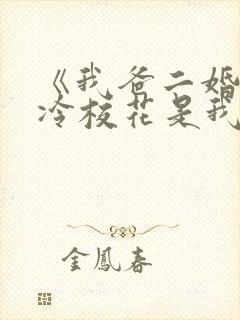 《我爸二婚
冷校花是我
金鳳春